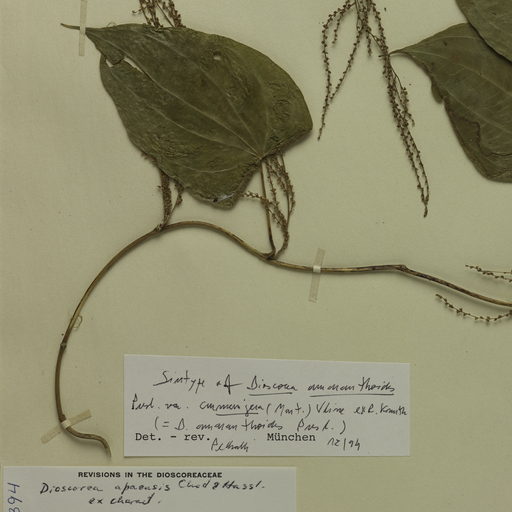 Sintype of Dioscorea amaranthoides
Presl. var. (Mart.) Uline ex R. Knuth
(= D. amaranthoides Presl.)
Det. - rev. München 12/94
REVISIONS IN THE DIOSCOREACEAE
Dioscorea apaensis Chod & Hassl.
ex charact.
394